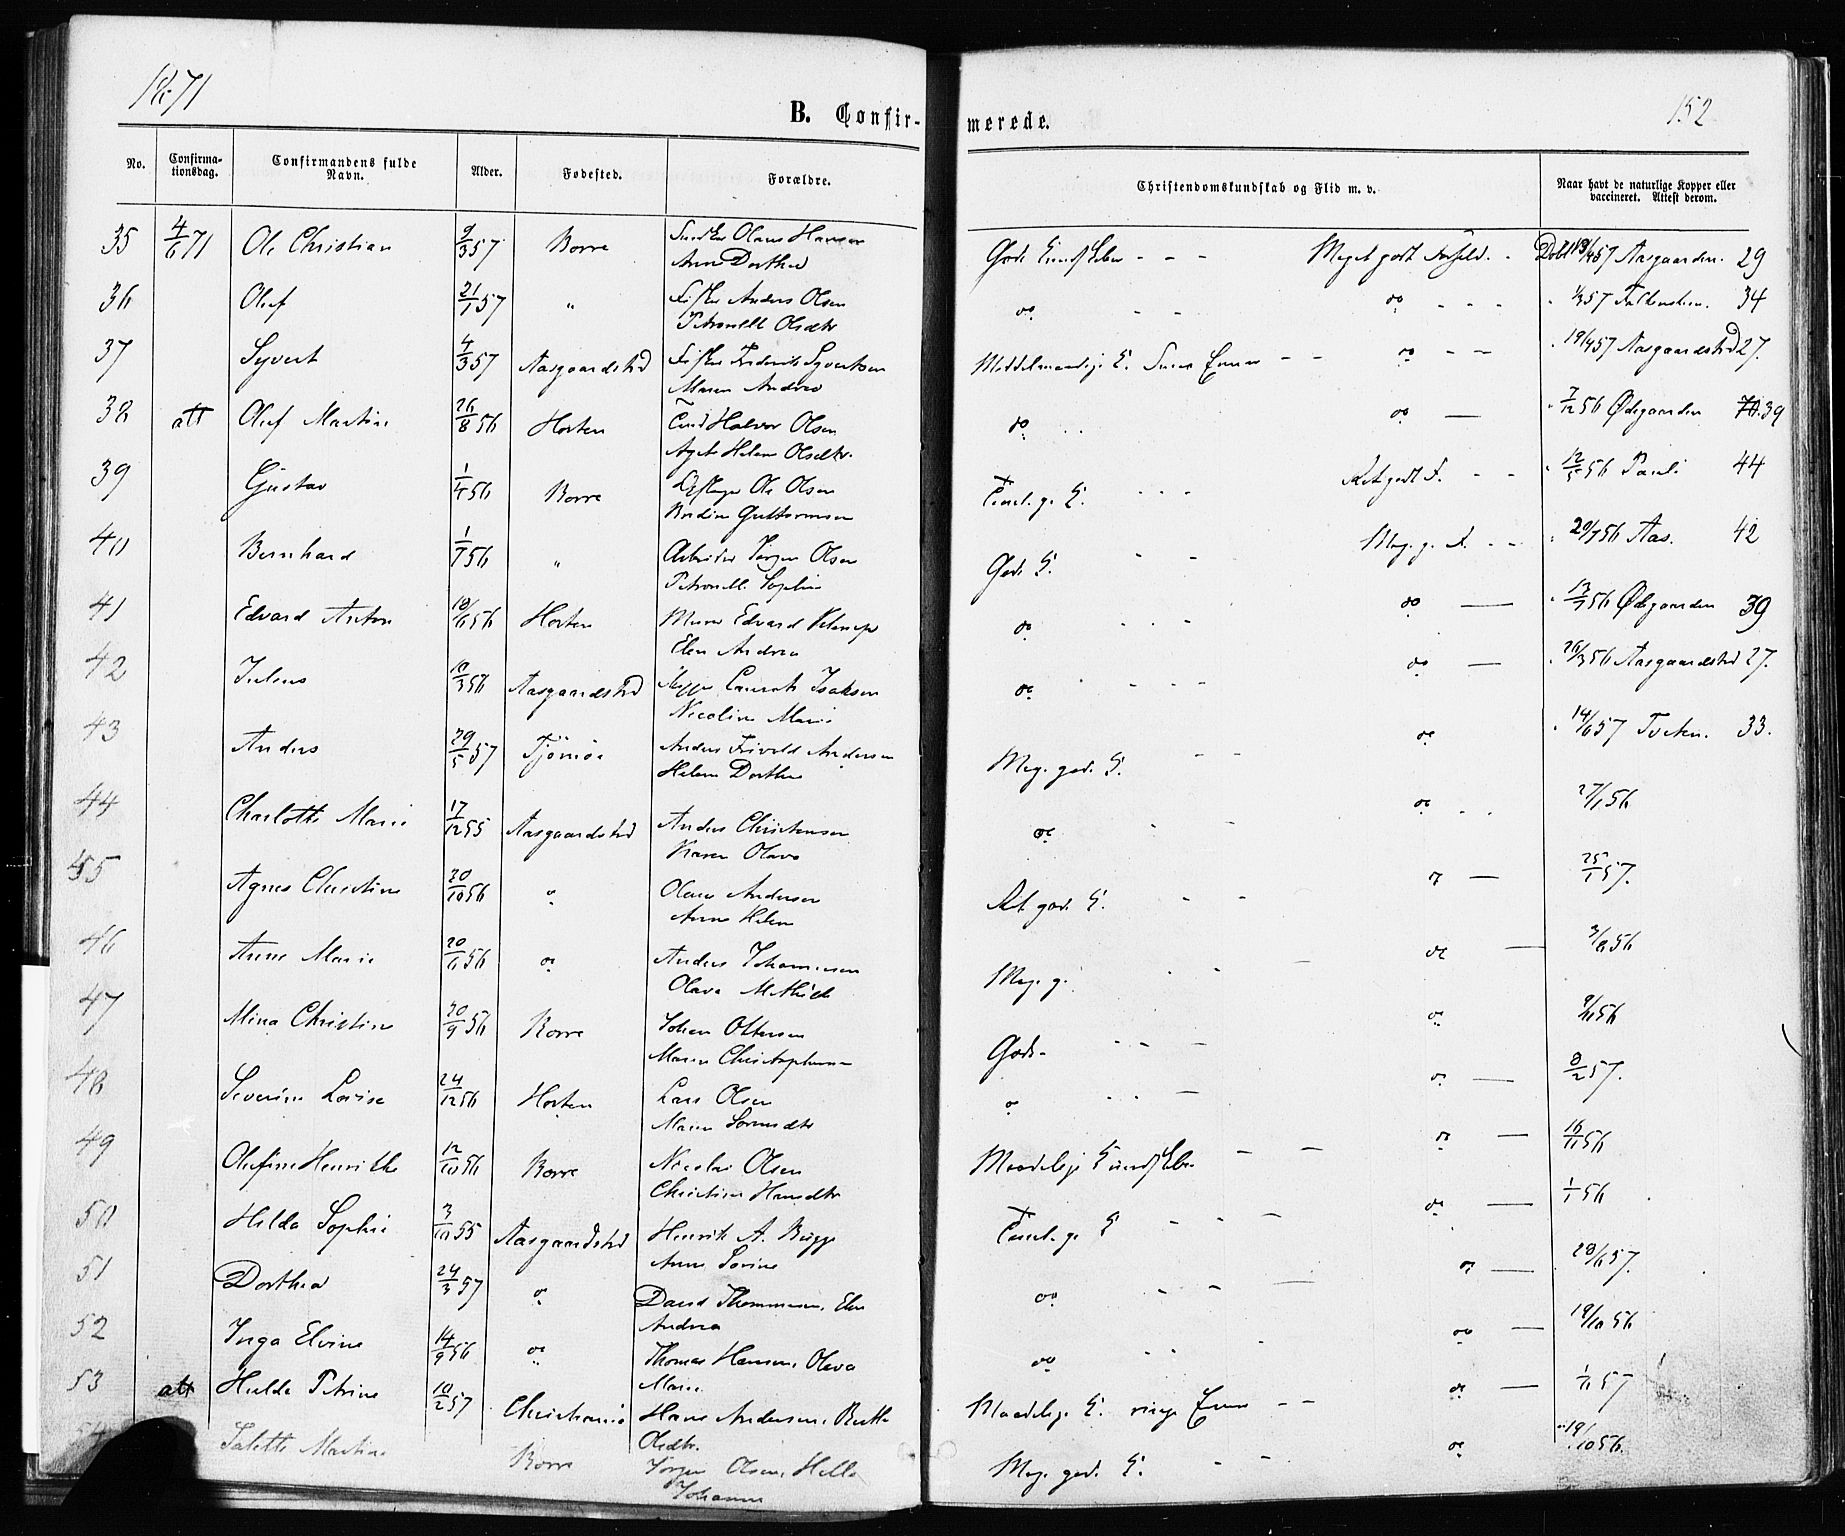 1871
B. Confir-
merede.
152
No.
Confirma-
tionsdag.
Confirmandens fulde
Navn.
Alder.
Fødested.
Forældre.
Christendomskundskab og Flid m. v.
Naar havt de naturlige Kopper eller
vaccineret. Attest derom.
35 4/6 71 Ole Christian 9/3 57 Borre Olaus Hansen Meget godt Forhold. 13/4 57 Aasgaarden. 29
Anne Dorthea
36 Oluf 21/1 57 " Anders Olsen do 1/3 57 Falkensten. 34
Petronelle Olsdtr do
37 Syvert 4/3 57 Aasgaardstrd Frederik Syvertsen Middelmaadige K. do 19/4 57 Aasgaardstrd 27.
Maren Andrea
38 att Oluf Martin 26/8 56 Horten Halvor Olsen do do 7/12 56 Ødegaarden 39
Helene Olsdtr.
39 Gustav 1/4 56 Borre Ole Olsen Temel. g. K. Ret godt F. 12/5 56 Pauli 44
Guttormsen
40 Bernhard 1/7 56 " Arbeider Jørgen Olsen Gode K. Meg. g. F. 20/7 56 Aas. 42
Petronelle Sophie
41 Edvard Anton 18/6 56 Horten Murer Edvard do do 13/7 56 Ødegaarden 39
Elen Andrea
42 Julius 10/3 56 Aasgaardstrd Laurits Isaksen do do 26/3 56 Aasgaardstrd 27.
Nicoline Marie
43 Anders 29/5 57 Tjømøe Anders Andersen Meg. gode K. do 14/6 57 Tveten. 33.
Helene Dorthea
44 Charlotte Marie 17/12 55 Aasgaardstrd Anders Christensen do do 27/1 56
Karen Olava
45 Agnes Christine 20/10 56 " Olaus Andersen Ret gode K. do 25/1 57.
Anne Helene
46 Anne Marie 20/6 56 do Anders Johannesen Meg. g. do 3/8 56
Olava Mathilde
47 Mina Christine 20/9 56 Borre Johan Ottersen Gode do 9/11 56
Maren Christophersen
48 Severine Lovise 24/12 56 Horten Lars Olsen do do 8/2 57.
Maren
49 Olufine Henriette 12/10 56 Borre Nicolai Olsen Maadelige Kundskber do 16/11 56
Christine Hansdtr
50 Hilda Sophie 3/10 55 Aasgaardstrd Henrik A. Bugge Temel. g. K do 1/1 56
Anne Sørine
51 Dorthea 24/3 57 do David Thommesen, Elen do do 28/6 57.
Andrea
52 Inga Elvine 14/9 56 do Thomas Hansen, Olava do do 19/10 56
Marie
53 att Hulda Petrine 10/2 57 Christiania Hans Andersen, Berthe Maadelige K. ringe Evner do 1/11 57
Olsdtr.
54 Talette Martine Borre Jørgen Olsen, Helle Meg. gode K. do 19/10 56.
Johanne